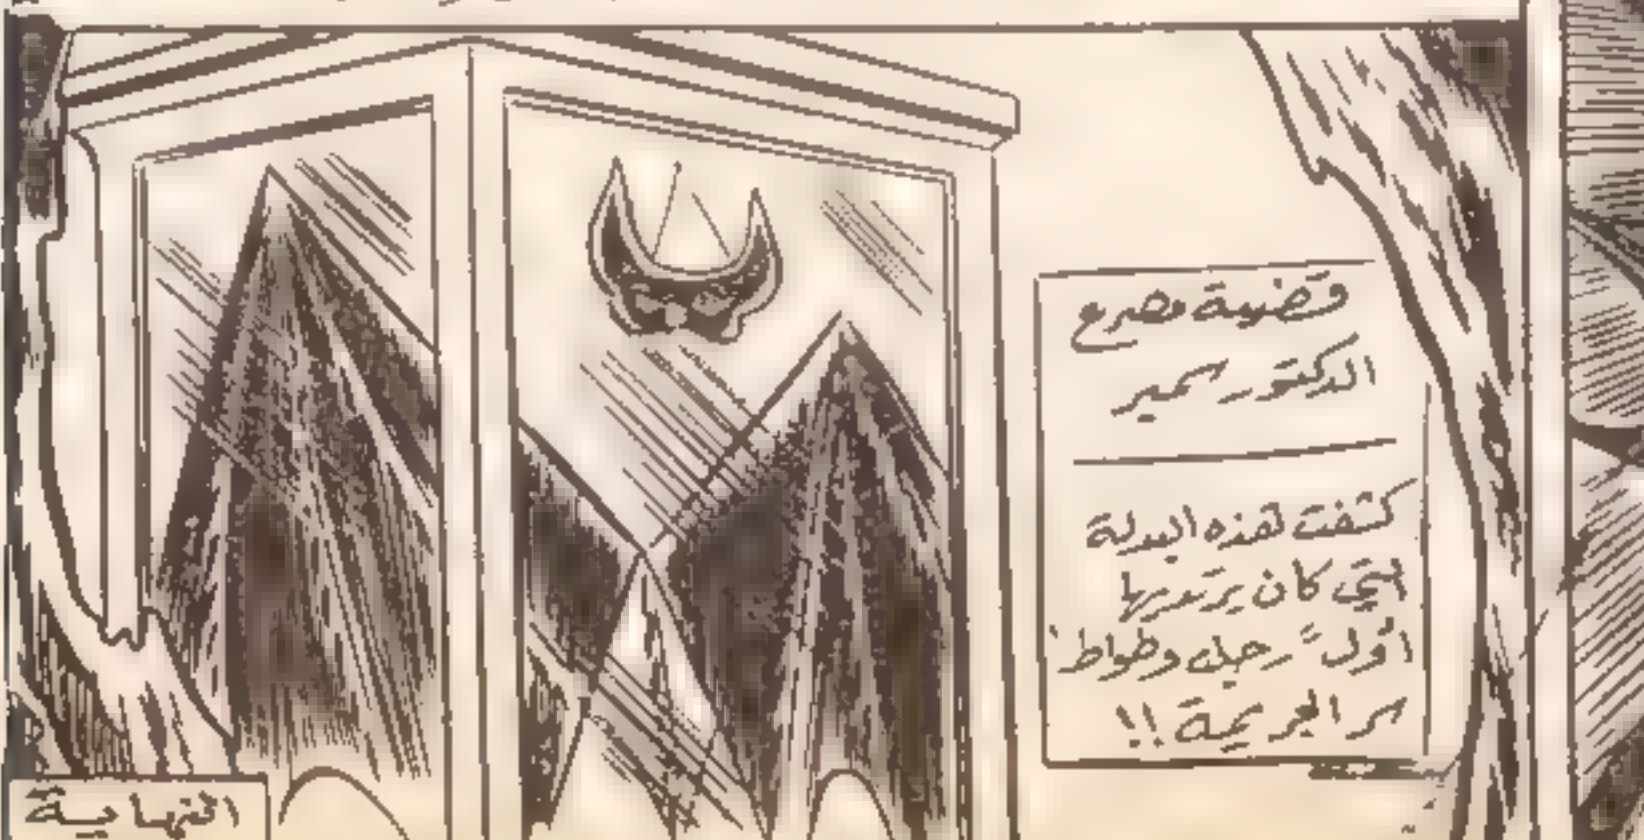 قضية مصرع
الدكتور سمير
كشفت هذه البدلة
التي كان يرتديها
أول "رجل وطواط"
سر الجريمة !!
النهاية